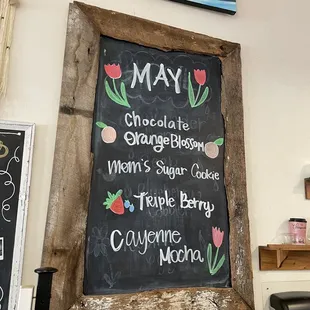 MAY
Chocolate
Orange Blossom
Mom's Sugar Cookie
Triple Berry
Cayenne
Mocha